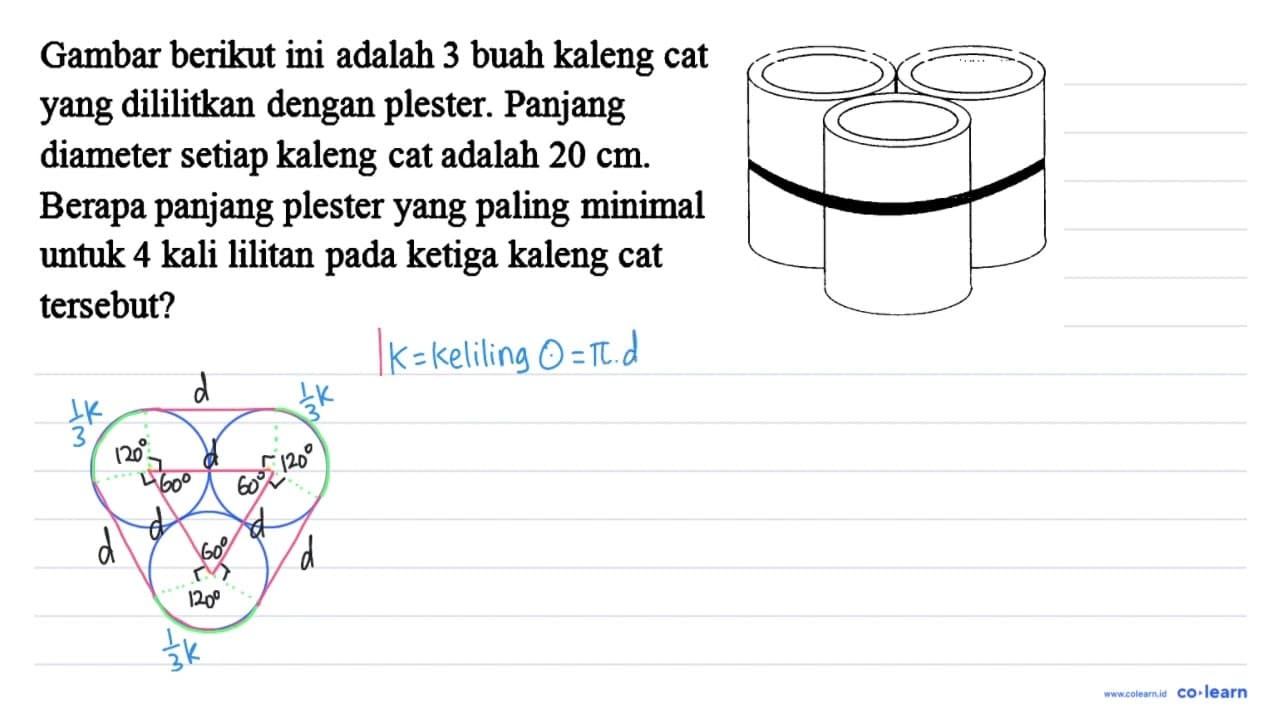 Gambar berikut ini adalah 3 buah kaleng cat
yang dililitkan dengan plester. Panjang
diameter setiap kaleng cat adalah 20 cm.
Berapa panjang plester yang paling minimal
untuk 4 kali lilitan pada ketiga kaleng cat
tersebut?
K = keliling ⊙ = π.d
d
1/3 K
1/3 K
120° d 120°
60° 60°
d d
d 60° d
120°
1/3 K
www.colearn.id co•learn